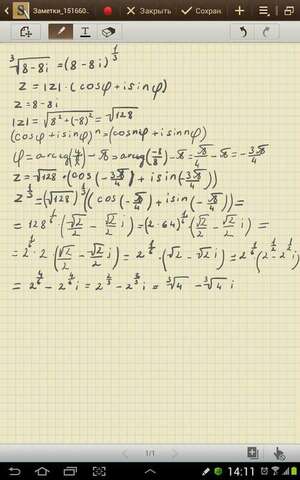 Заметки_151660...
Закрыть
Сохран.
∛8-8i = (8-8i)^(1/3)
z = |z|·(cosφ+isinφ)
z=8-8i
|z| = √(8²+(-8)²) = √128
(cosφ+isinφ)ⁿ=(cosnφ+isinnφ)
φ=arctg(y/x)-π=arctg(-8/8)-π=π/4-π=-3π/4
z=√128·(cos(-3π/4)+isin(-3π/4))
z^(1/3)=(√128)^(1/3)((cos(-π/4)+isin(-π/4))=
=128^(1/6)·(√2/2-√2/2i)=(2·64)^(1/6)(√2/2-√2/2i)=
=2^(1/6)·2(√2/2-√2/2i)=2^(1/6)·(√2-√2i)=2^(1/6)(2^(1/2)-2^(1/2)i)
=2^(4/6)-2^(4/6)i=2^(2/3)-2^(2/3)i=∛4-∛4i
1/1
14:11